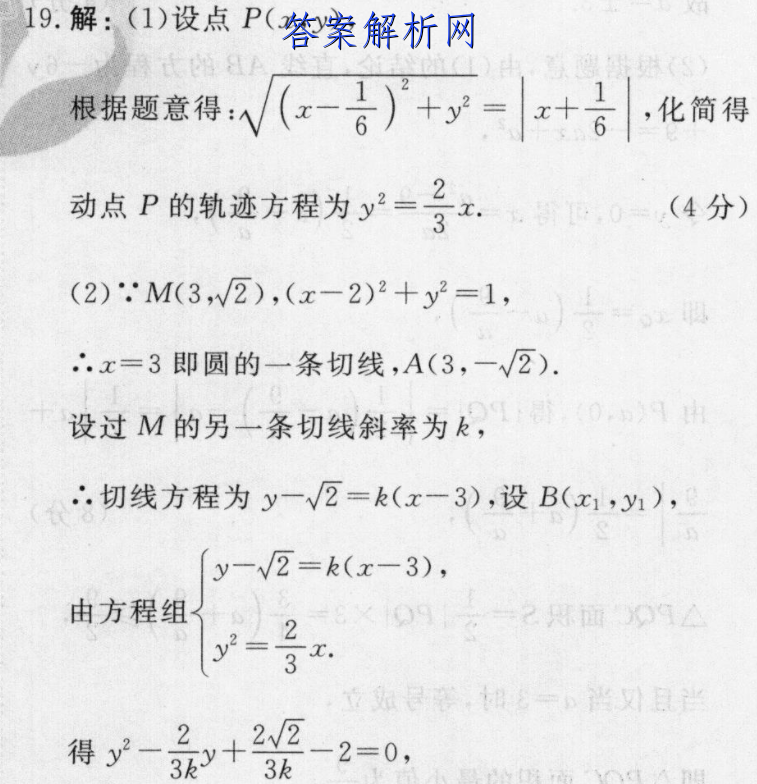 19. 解：(1)设点 P(x,y),
答案解析网
根据题意得：√((x−1/6)²+y²) = |x+1/6|,化简得
动点 P 的轨迹方程为 y²=2/3x. (4分)
(2)∵M(3,√2),(x−2)²+y²=1,
∴x=3 即圆的一条切线,A(3,−√2).
设过 M 的另一条切线斜率为 k,
∴切线方程为 y−√2=k(x−3),设 B(x₁,y₁),
由方程组{y−√2=k(x−3),
y²=2/3x.
得 y²−2/3k y+2√2/3k−2=0,